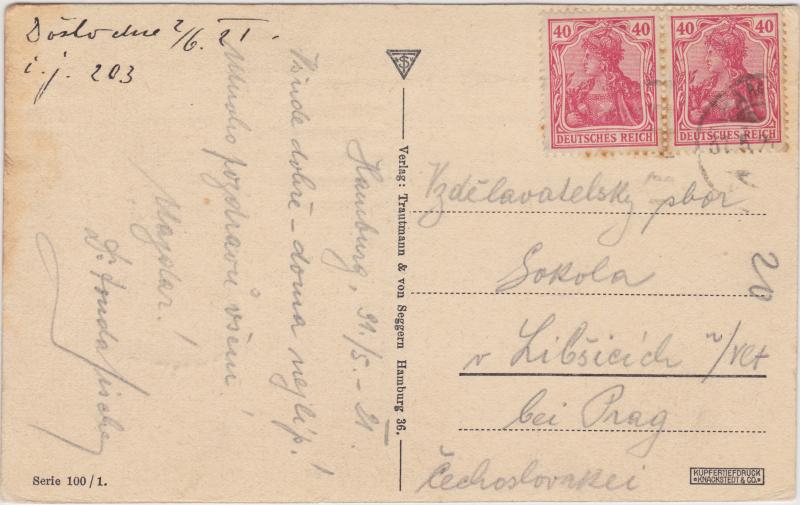 Došlo dne 2/6. 21.
i. j. 203
Hamburg, 31./5. - 21.
Všude dobře - doma nejlíp!
Mnoho pozdravů všem!
Nazdar!
Dr.
Serie 100/1.
Verlag: Trautmann & von Seggern Hamburg 36.
40 40
DEUTSCHES REICH
40 40
DEUTSCHES REICH
Vzdělavatelský sbor
Sokola
v Libšicích n/Vlt
bei Prag
Čechoslovakei
20
KUPFERTIEFDRUCK
KNACKSTEDT & CO.